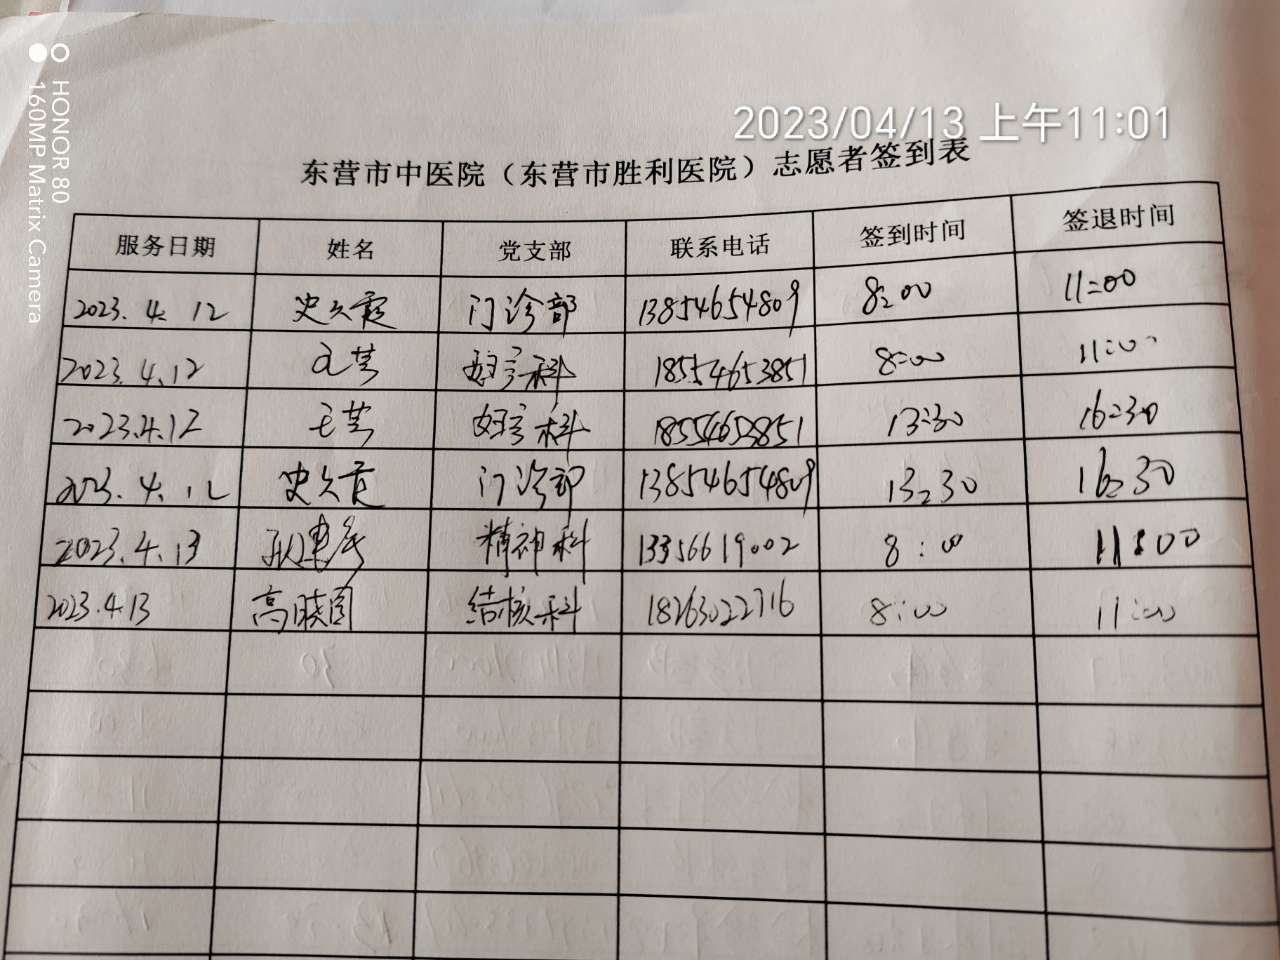 HONOR 80
160MP Matrix Camera
2023/04/13 上午11:01
东营市中医院（东营市胜利医院）志愿者签到表
服务日期 姓名 党支部 联系电话 签到时间 签退时间
2023.4.12 史久霞 门诊部 13854654809 8:00 11:00
2023.4.12 王芸 妇产科 18554653851 8:00 11:00
2023.4.12 王芸 妇产科 18554653851 13:30 16:30
2023.4.12 史久霞 门诊部 13854654809 13:30 16:30
2023.4.13 精神科 13356619002 8:00 11:00
2023.4.13 高晓图 结核科 18263022716 8:00 11:00